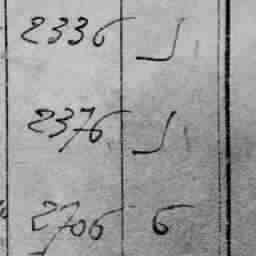 2336
2376
2706 6